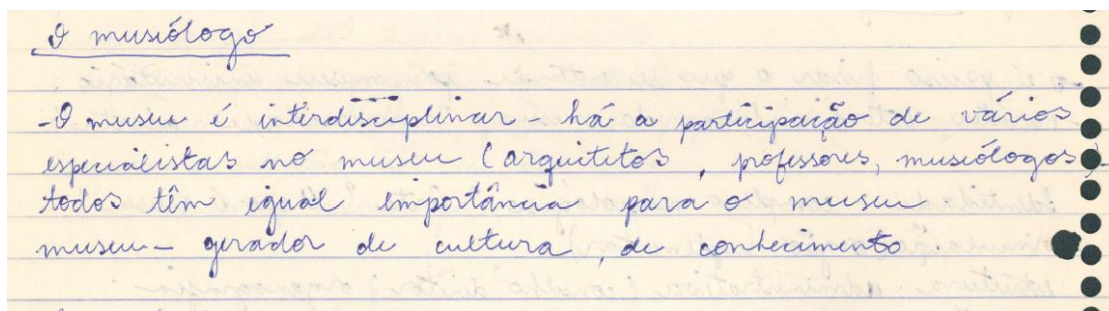 O musiólogo
- O museu é interdisciplinar - há a participação de vários
especialistas no museu (arquitetos, professores, musiólogos)
todos têm igual importância para o museu
museu - gerador de cultura, de conhecimento.